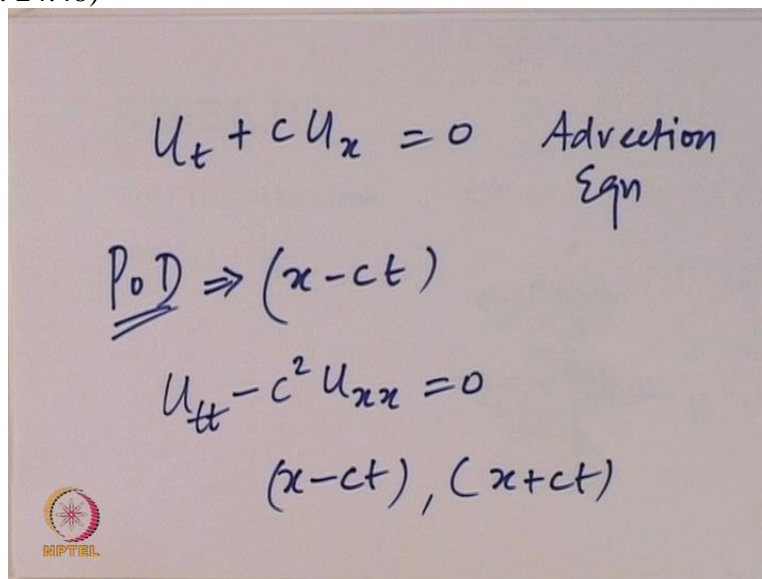 U_t + C U_x = 0 Advection
Eqn
PoD ⇒ (x-ct)
U_tt - c² U_xx = 0
(x-ct), (x+ct)
NPTEL